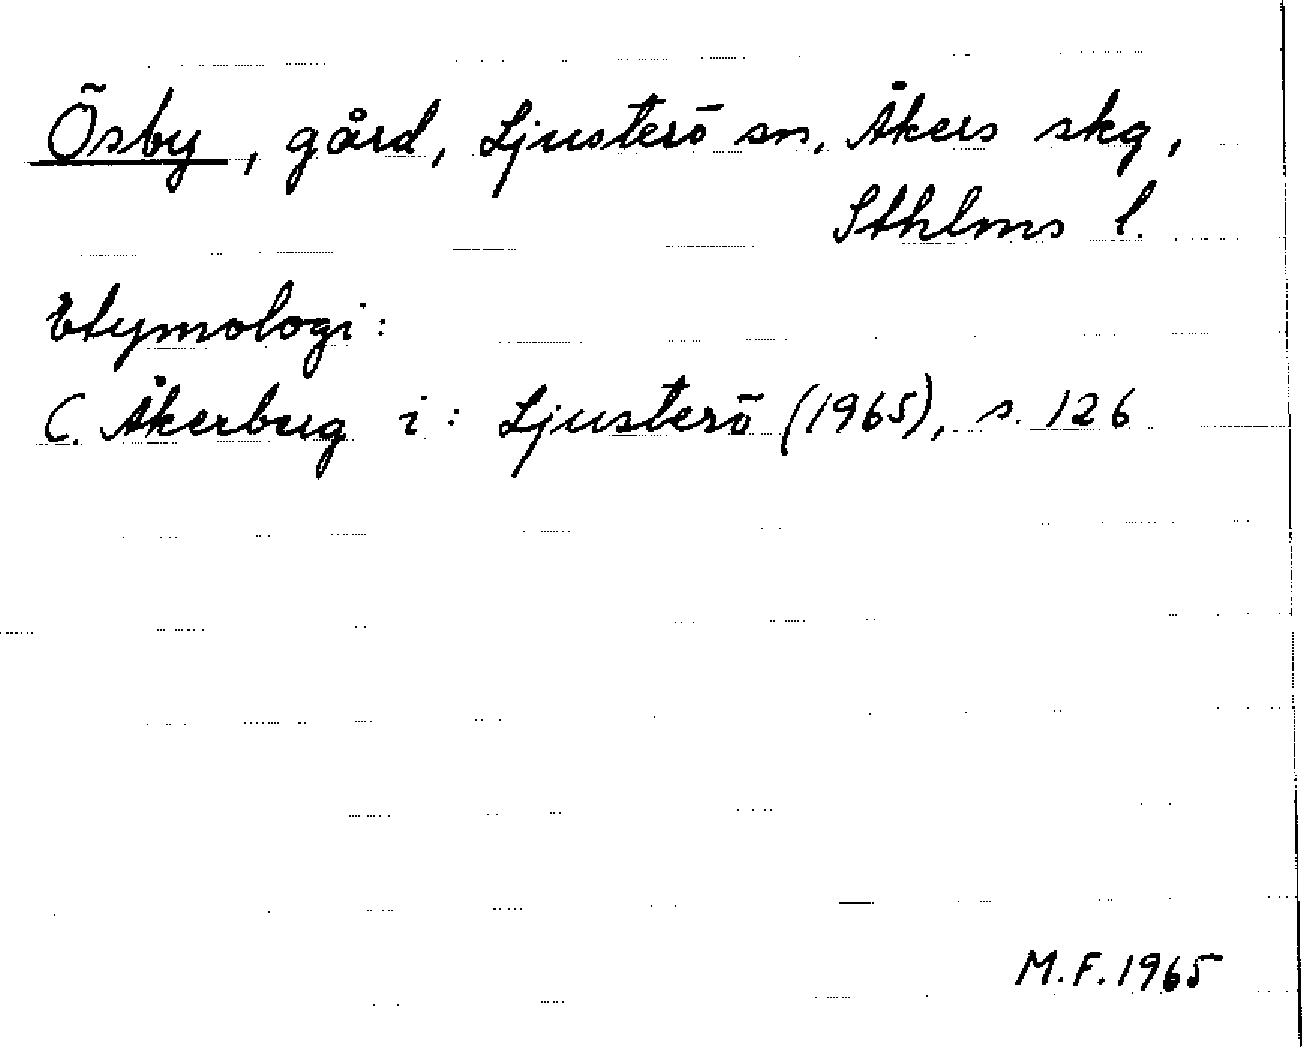 Ösby, gård, Ljusterö sn, Åkers skg,
Sthlms l.
Etymologi:
C. Åkerbug i: Ljusterö (1965), s. 126
M.F. 1965